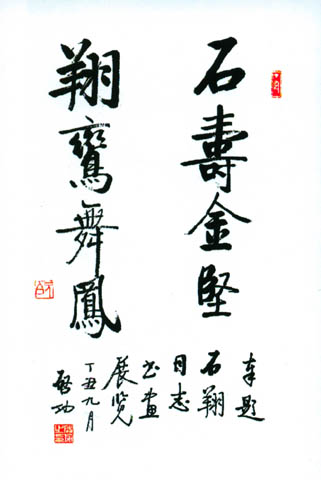 石壽金堅
翔鸞舞鳳
奉題
石翔
同志
书画
展览
丁丑九月
啓功